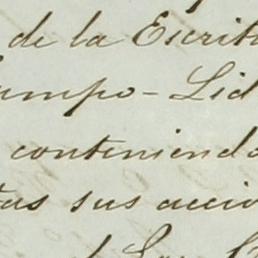 de la Escrit
ampo - Lid
conteniendo
tas sus accio